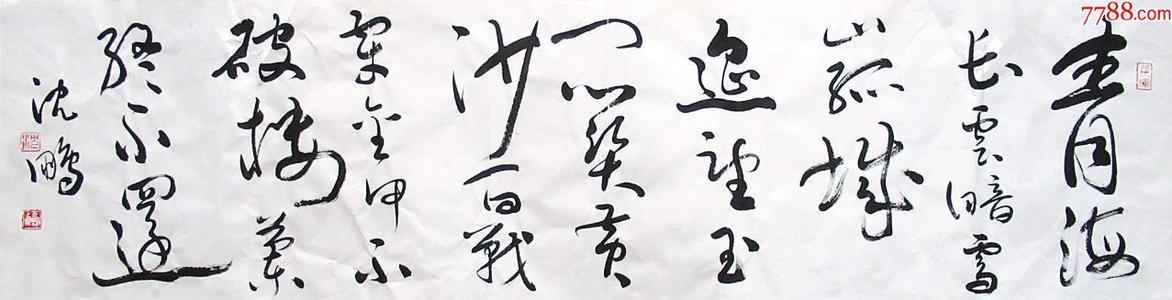 青海
长雲暗雪
山孤城
遥望玉
门関黄
沙百戰
穿金甲不
破楼蘭
終不還
沈鹏
7788.com